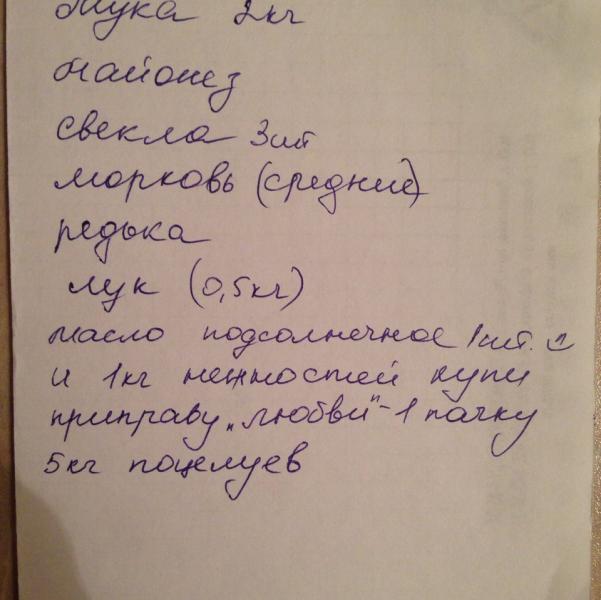 мука 2кг
майонез
свекла 3шт
морковь (средние)
редька
лук (0,5кг)
масло подсолнечное 1шт.
и 1кг нежностей купи
приправу „любви" - 1 пачку
5кг поцелуев